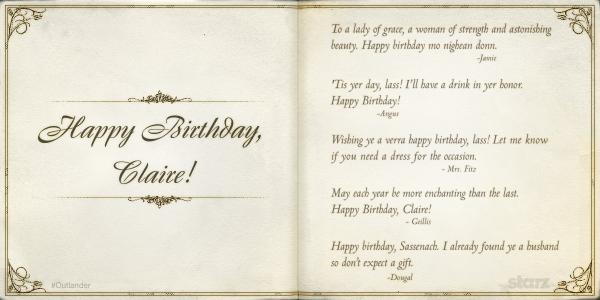 Happy Birthday,
Claire!
#Outlander
To a lady of grace, a woman of strength and astonishing
beauty. Happy birthday mo nighean donn.
-Jamie
'Tis yer day, lass! I'll have a drink in yer honor.
Happy Birthday!
-Angus
Wishing ye a verra happy birthday, lass! Let me know
if you need a dress for the occasion.
- Mrs. Fitz
May each year be more enchanting than the last.
Happy Birthday, Claire!
- Geillis
Happy birthday, Sassenach. I already found ye a husband
so don't expect a gift.
-Dougal
starz